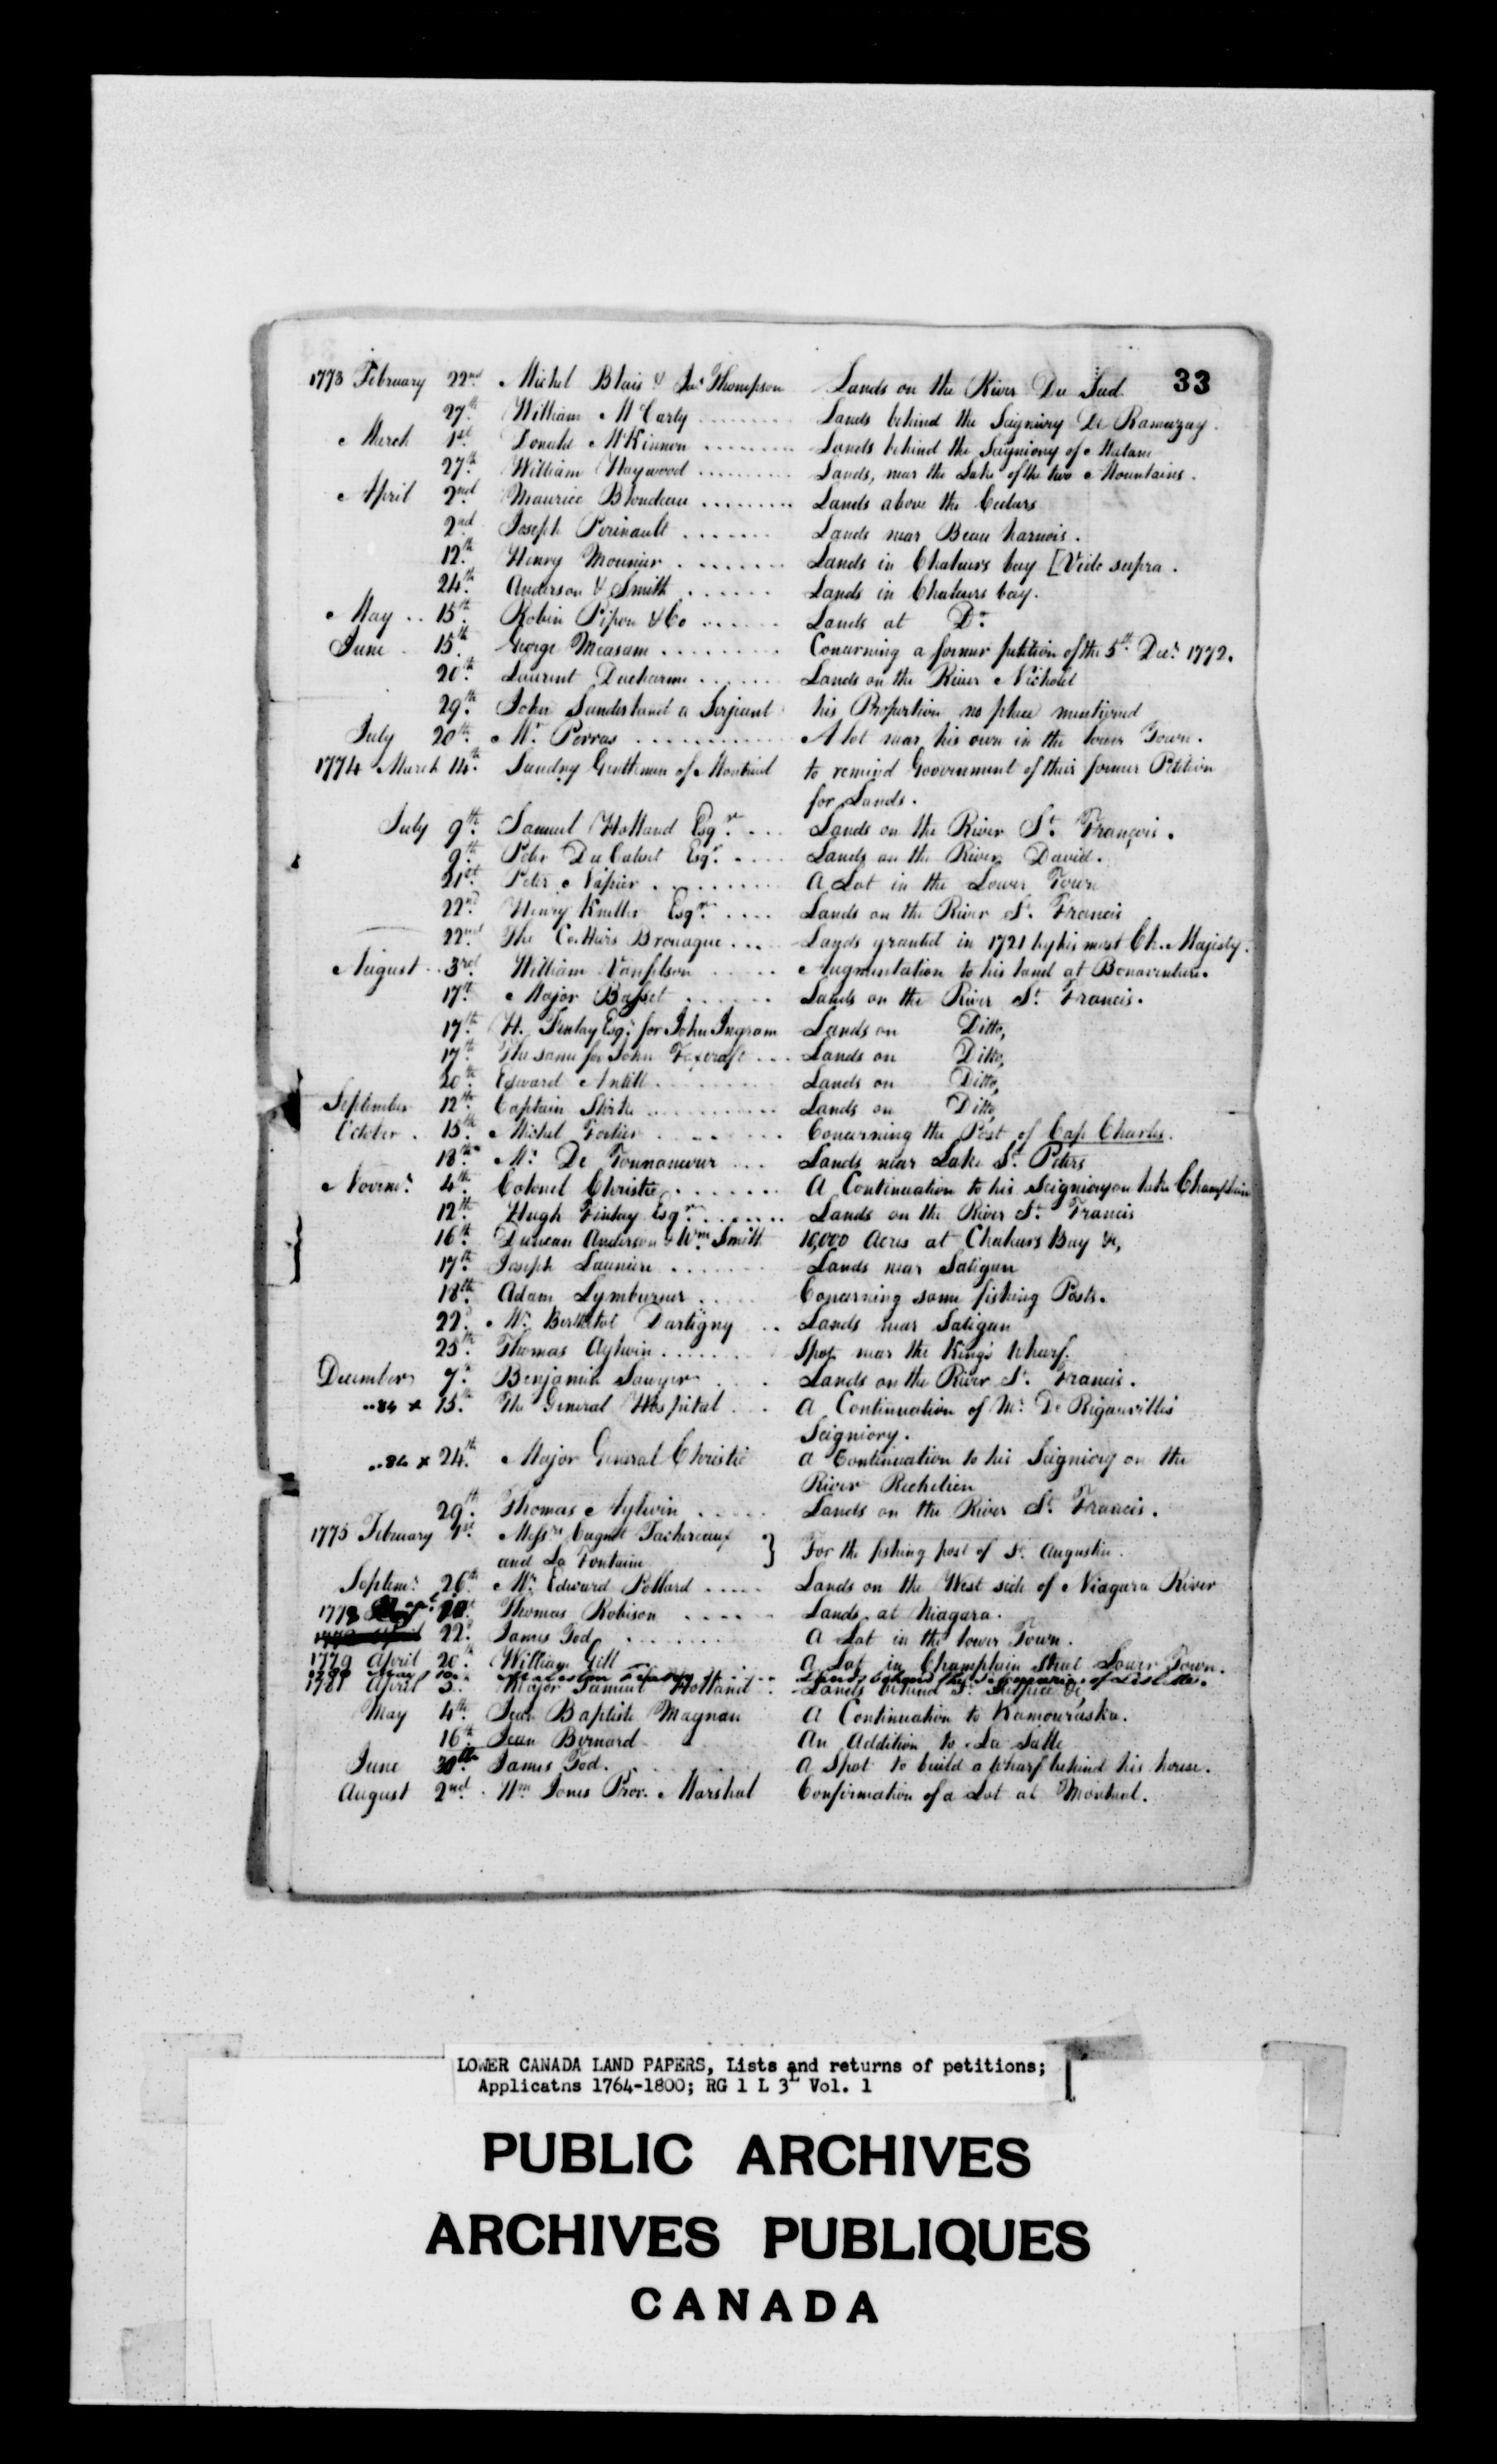 33
1773 February 22nd Michel Blais & Jas Thompson Lands on the River Du Sud
27th William McCarty ........ Lands behind the Seigniory De Ramazay.
March 1st Donald McKinnon ........ Lands behind the Seigniory of Matane
27th William Haywood ........ Lands, near the Lake of the two Mountains.
April 2nd Maurice Blondeau ........ Lands above the Cedars
2nd Joseph Perinault ....... Lands near Beau harnois.
12th Henry Mounier ........ Lands in Chaleurs bay [Vide supra.
24th Anderson & Smith ...... Lands in Chaleurs bay.
May .. 15th Robin Pipon & Co ...... Lands at Do
June 15th George Measam ........ Concerning a former petition of the 5th Decr 1772.
20th Laurent Ducharme ...... Lands on the River Nicholet
29th John Sunderland a Serjeant his Proportion no place mentioned
July 20th Mr Perras ............ A lot near his own in the lower Town.
1774 March 14th Sundry Gentlemen of Montreal to remind Government of their former Petition
for Lands.
July 9th Samuel Holland Esqr ... Lands on the River St. François.
9th Peter Du Calvet Esqr .... Lands on the River David.
21st Peter Napier ......... A Lot in the Lower Town
22nd Henry Kneller Esqr .... Lands on the River St. Francis
22nd The Brouague ... Lands granted in 1721 by his most Ch. Majesty.
August .. 3rd William Vanfelson ..... Augmentation to his land at Bonaventure.
17th Major Basset ...... Lands on the River St. Francis.
17th H. Finlay Esqr for John Ingram Lands on Ditto,
17th The same for John Foxcraft ... Lands on Ditto,
20th Edward Antill ........ Lands on Ditto,
September 12th Captain Shirke .......... Lands on Ditto,
October . 15th Michel Fortier ........ Concerning the Post of Cap Charles.
18th Mr De Tonnancour ... Lands near Lake St. Peters
Novemr 4th Colonel Christie ....... A Continuation to his Seigniory on Lake Champlain
12th Hugh Finlay Esqr ...... Lands on the River St. Francis
16th Duncan Anderson & Wm Smith 10,000 Acres at Chaleurs Bay &c,
17th Joseph Launiere ....... Lands near Satigan
18th Adam Lymburner ..... Concerning some fishing Posts.
22d Mr Berthelot Dartigny .. Lands near Satigan
25th Thomas Aylwin ....... Spot near the King's Wharf.
December 7th Benjamin Sawyer .... Lands on the River St. Francis.
..84 x 15th The General Hospital ... A Continuation of Mr De Rigauville's
Seigniory.
..84 x 24th Major General Christie a Continuation to his Seigniory on the
River Richelieu
29th Thomas Aylwin ..... Lands on the River St. Francis.
1775 February 1st Messrs Cugnet Tachereaux
and La Fontaine } For the fishing post of St. Augustin.
Septemr 26th Mr Edward Pollard ..... Lands on the West side of Niagara River
1778 Thomas Robison ..... Lands at Niagara.
22d James Tod ....... A Lot in the lower Town.
1779 April 20th William Gill ..... A Lot in Champlain Street Lower Town.
1780 May 10th Lands behind the
1781 April 3d Major Samuel Holland . Lands behind St.
May 4th Jean Baptiste Magnan A Continuation to Kamouraska.
16th Jean Bernard An Addition to La Salle
June 30th James Tod. A Spot to build a wharf behind his house.
August 2nd Wm Jones Prov. Marshal Confirmation of a Lot at Montreal.
LOWER CANADA LAND PAPERS, Lists and returns of petitions;
Applicatns 1764-1800; RG 1 L 3L Vol. 1
PUBLIC ARCHIVES
ARCHIVES PUBLIQUES
CANADA